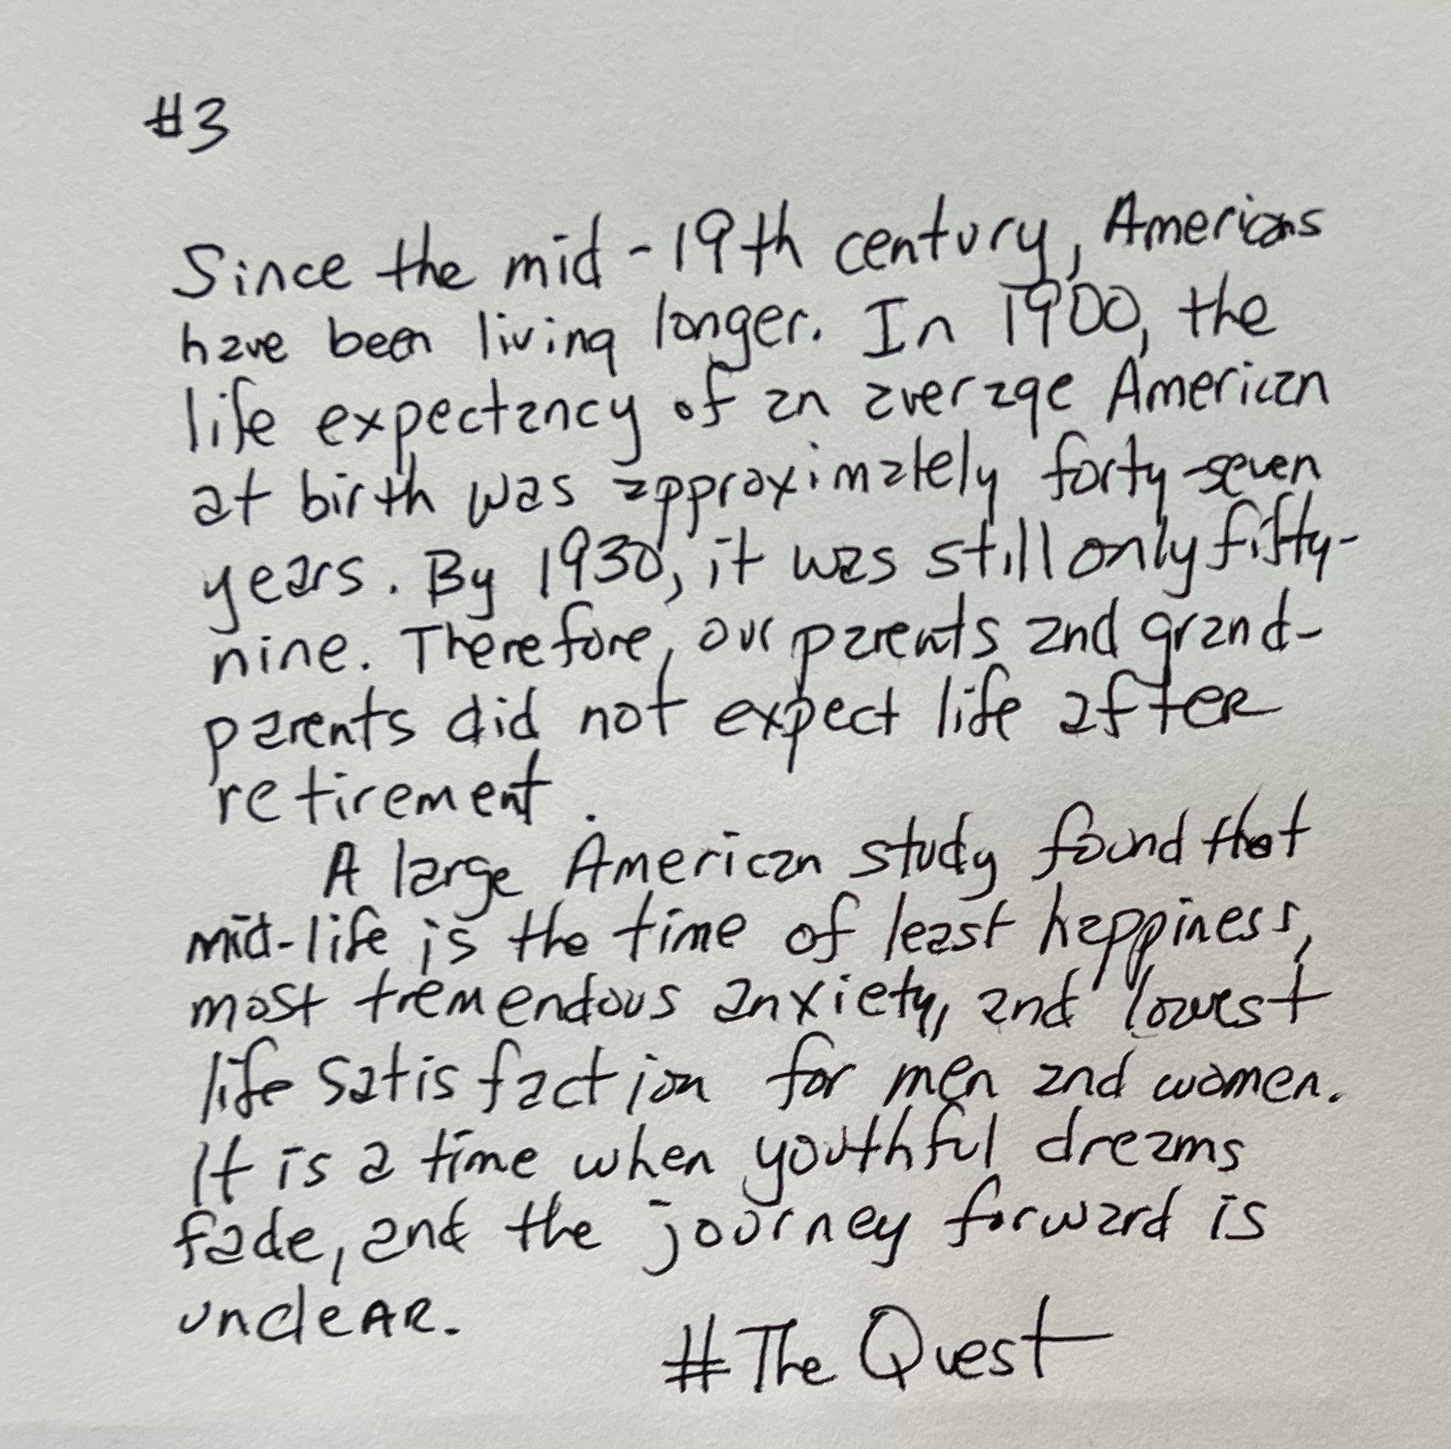 #3
Since the mid-19th century, Americans
have been living longer. In 1900, the
life expectancy of an average American
at birth was approximately forty-seven
years. By 1930, it was still only fifty-
nine. Therefore, our parents and grand-
parents did not expect life after
retirement.
A large American study found that
mid-life is the time of least happiness,
most tremendous anxiety, and lowest
life satisfaction for men and women.
It is a time when youthful dreams
fade, and the journey forward is
unclear.
#The Quest